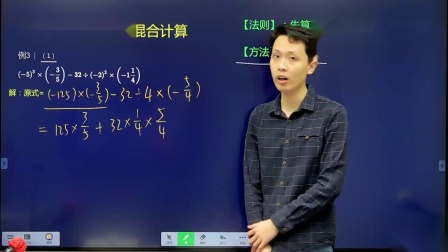 混合计算
【法则】：先算
【方法
例3｜（1）
(-5)³×(-3/5)-32÷(-2)²×(-1 1/4)
解：原式=(-125)×(-3/5)-32÷4×(-5/4)
=125×3/5+32×1/4×5/4